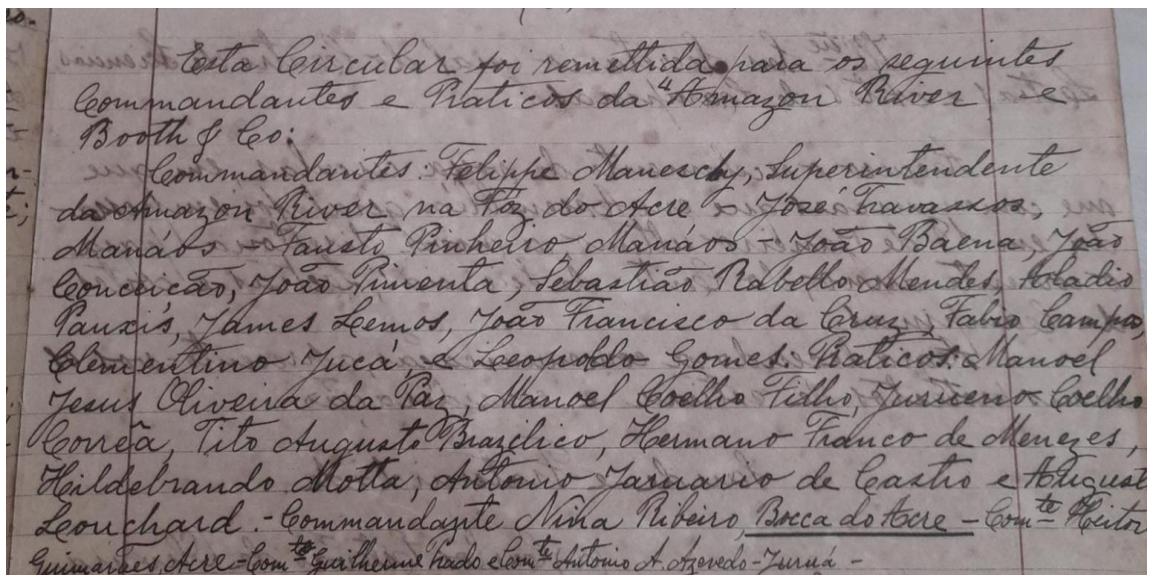 Esta Circular foi remettida para os seguintes
Commandantes e Praticos da "Amazon River e
Booth & Co:
Commandantes. Felippe Maneschy, Superintendente
da Amazon River na Foz do Acre - José Travassos,
Manáos - Fausto Pinheiro Manáos - João Baena, João
Conceição, João Pimenta, Sebastião Rabello Mendes,
Pauxis, James Lemos, João Francisco da Cruz, Fabio Campos,
Clementino Jucá, e Leopoldo Gomes. Praticos: Manoel
Jesus Oliveira da Paz, Manoel Coelho Filho, Coelho
Corrêa, Tito Augusto Brazilico, Hermano Franco de Menezes,
Hildebrando Motta, Antonio Januario de Castro e August
Leouchard. - Commandante Nina Ribeiro, Bocca do Acre - Com.te Heitor
Guimarães, Acre - Com.te Guilherme Prado e Com.te Antonio A. Azevedo - Juruá -